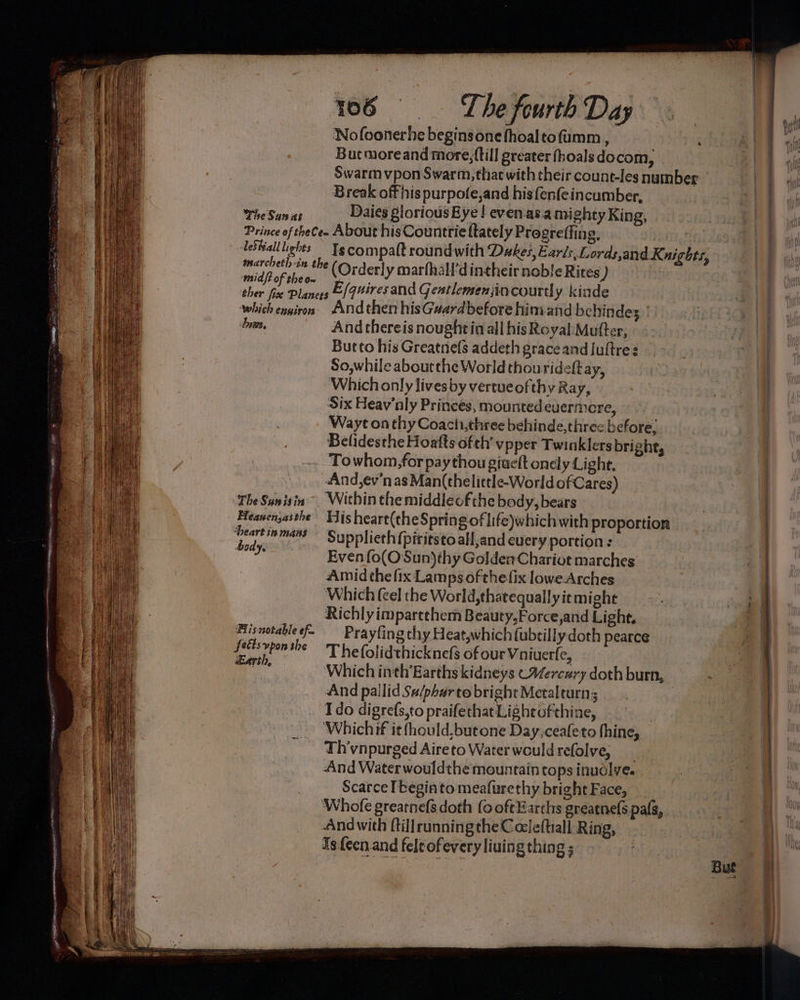 106 The fourth Day
No ſooner he begins one ſhoal to ſumm,
But more and more, ſtill greater ſhoals do com,
Swarm vpon Swarm, that with their count-les number
Break off his purpoſe, and his ſenſe incumber,
The Sun as Daies glorious Eye! even as a mighty King,
Prince of the Ce- About his Countrie ſtately Progreſſing,
leſtiall lights Is compaſt round with Dukes, Earls, Lords, and Knights,
marcheth in the (Orderly marſhall'd in their noble Rites)
midſt of the o-
ther ſix Planets Eſquires and Gentlemen, in courtly kinde
which enuiron And then his Guard before him and behinde;
him. And there is nought in all his Royal Muſter,
But to his Greatneſs addeth grace and luſtre:
So, while about the World thou rideſt ay,
Which only lives by vertue of thy Ray,
Six Heav'nly Princes, mounted euermore,
Wayt on thy Coach, three behinde, three before,
Beſides the Hoaſts of th' vpper Twinklers bright,
To whom, for pay thou giueſt onely Light.
And, ev'n as Man (the little-World of Cares)
The Sun is in Within the middle of the body, bears
Heauen, as the His heart (the Spring of life) which with proportion
heart in mans Supplieth ſpirits to all, and euery portion:
body. Even ſo (O Sun) thy Golden Chariot marches
Amid the ſix Lamps of the ſix lowe Arches
Which ſeel the World, that equally it might
Richly impart them Beauty, Force, and Light.
His notable ef- Prayſing thy Heat, which ſubtilly doth pearce
fects vpon the The ſolid thickneſs of our Vniuerſe,
Earth, Which in th' Earths kidneys Mercury doth burn,
And pallid Sulphur to bright Metal turn;
I do digreſs, to praiſe that Light of thine,
Which if it ſhould, but one Day, ceaſe to ſhine,
Th' vnpurged Aire to Water would reſolve,
And Water would the mountain tops inuolve.
Scarce I begin to meaſure thy bright Face,
Whoſe greatneſs doth ſo oft Earths greatneſs paſs,
And with ſtill running the Cœleſtiall Ring,
Is ſeen and felt of every liuing thing;
But